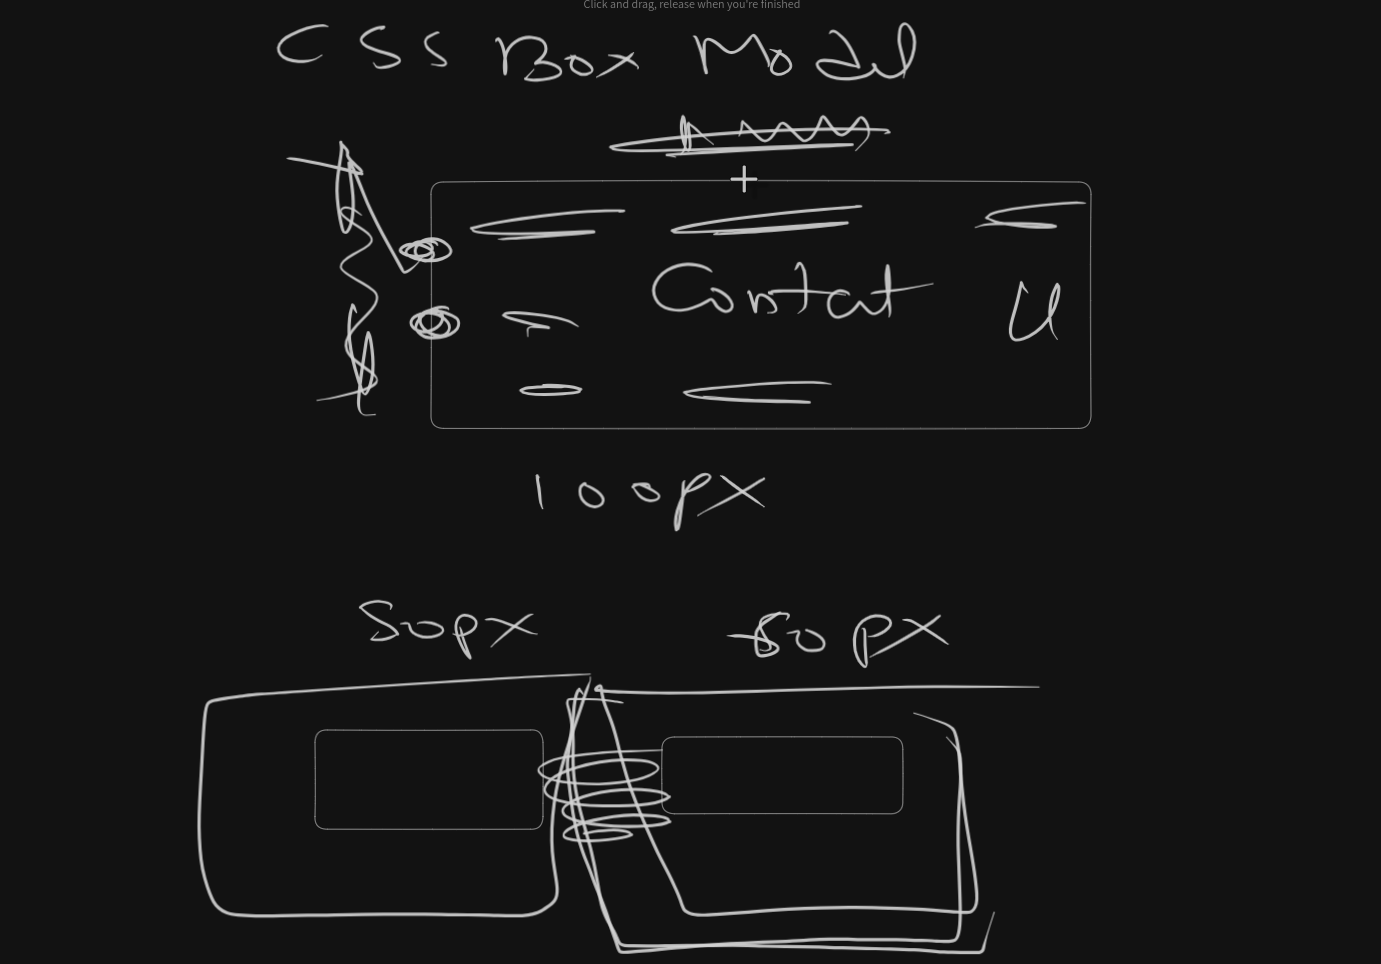 Click and drag, release when you're finished
CSS Box Model
Contat
100px
50px 50px